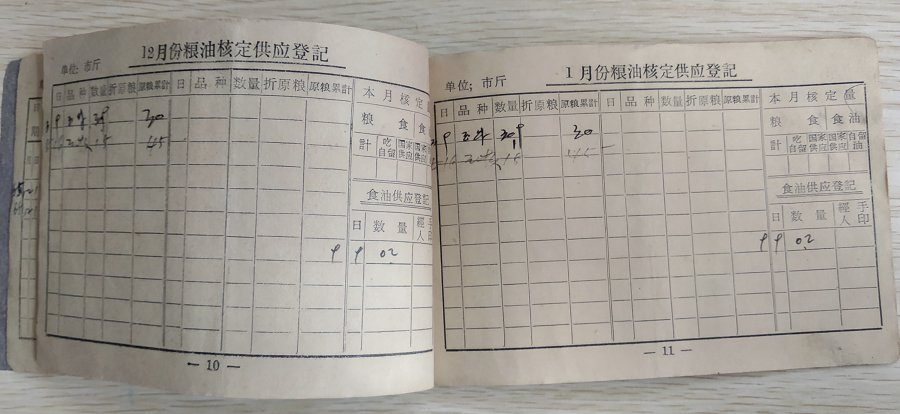 12月份粮油核定供应登記
单位:市斤
日 品种 数量 折原粮 原粮累計 日 品种 数量 折原粮 原粮累計 本月核定
粮食 食
計 吃自留 国家供应 国家供应
9 30
15 45
食油供应登記
日 数量 經人
9 9 02
— 10 —
1月份粮油核定供应登記
单位;市斤
日 品种 数量 折原粮 原粮累計 日 品种 数量 折原粮 原粮累計 本月核定量
粮食 食油
計 吃自留 国家供应 国家供应 自留油
9 30
食油供应登記
日 数量 經人 手印
9 9 02
— 11 —